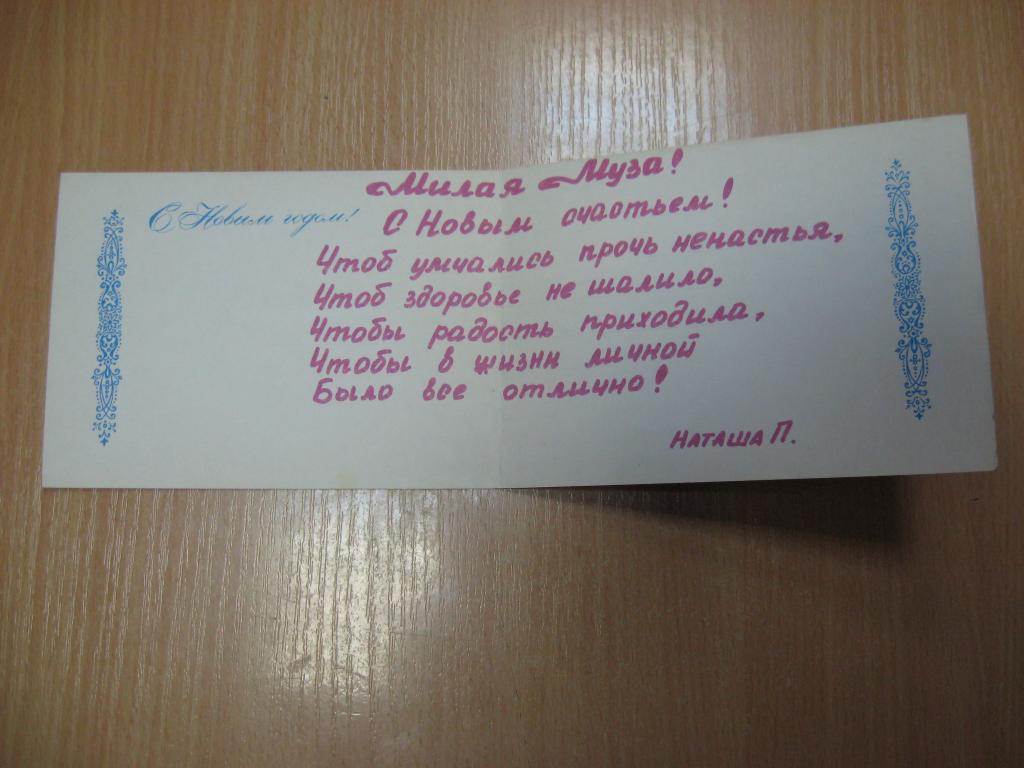 С Новым годом!
Милая Муза!
С Новым счастьем!
Чтоб умчались прочь ненастья,
Чтоб здоровье не шалило,
Чтобы радость приходила,
Чтобы в жизни личной
Было все отлично!
Наташа П.